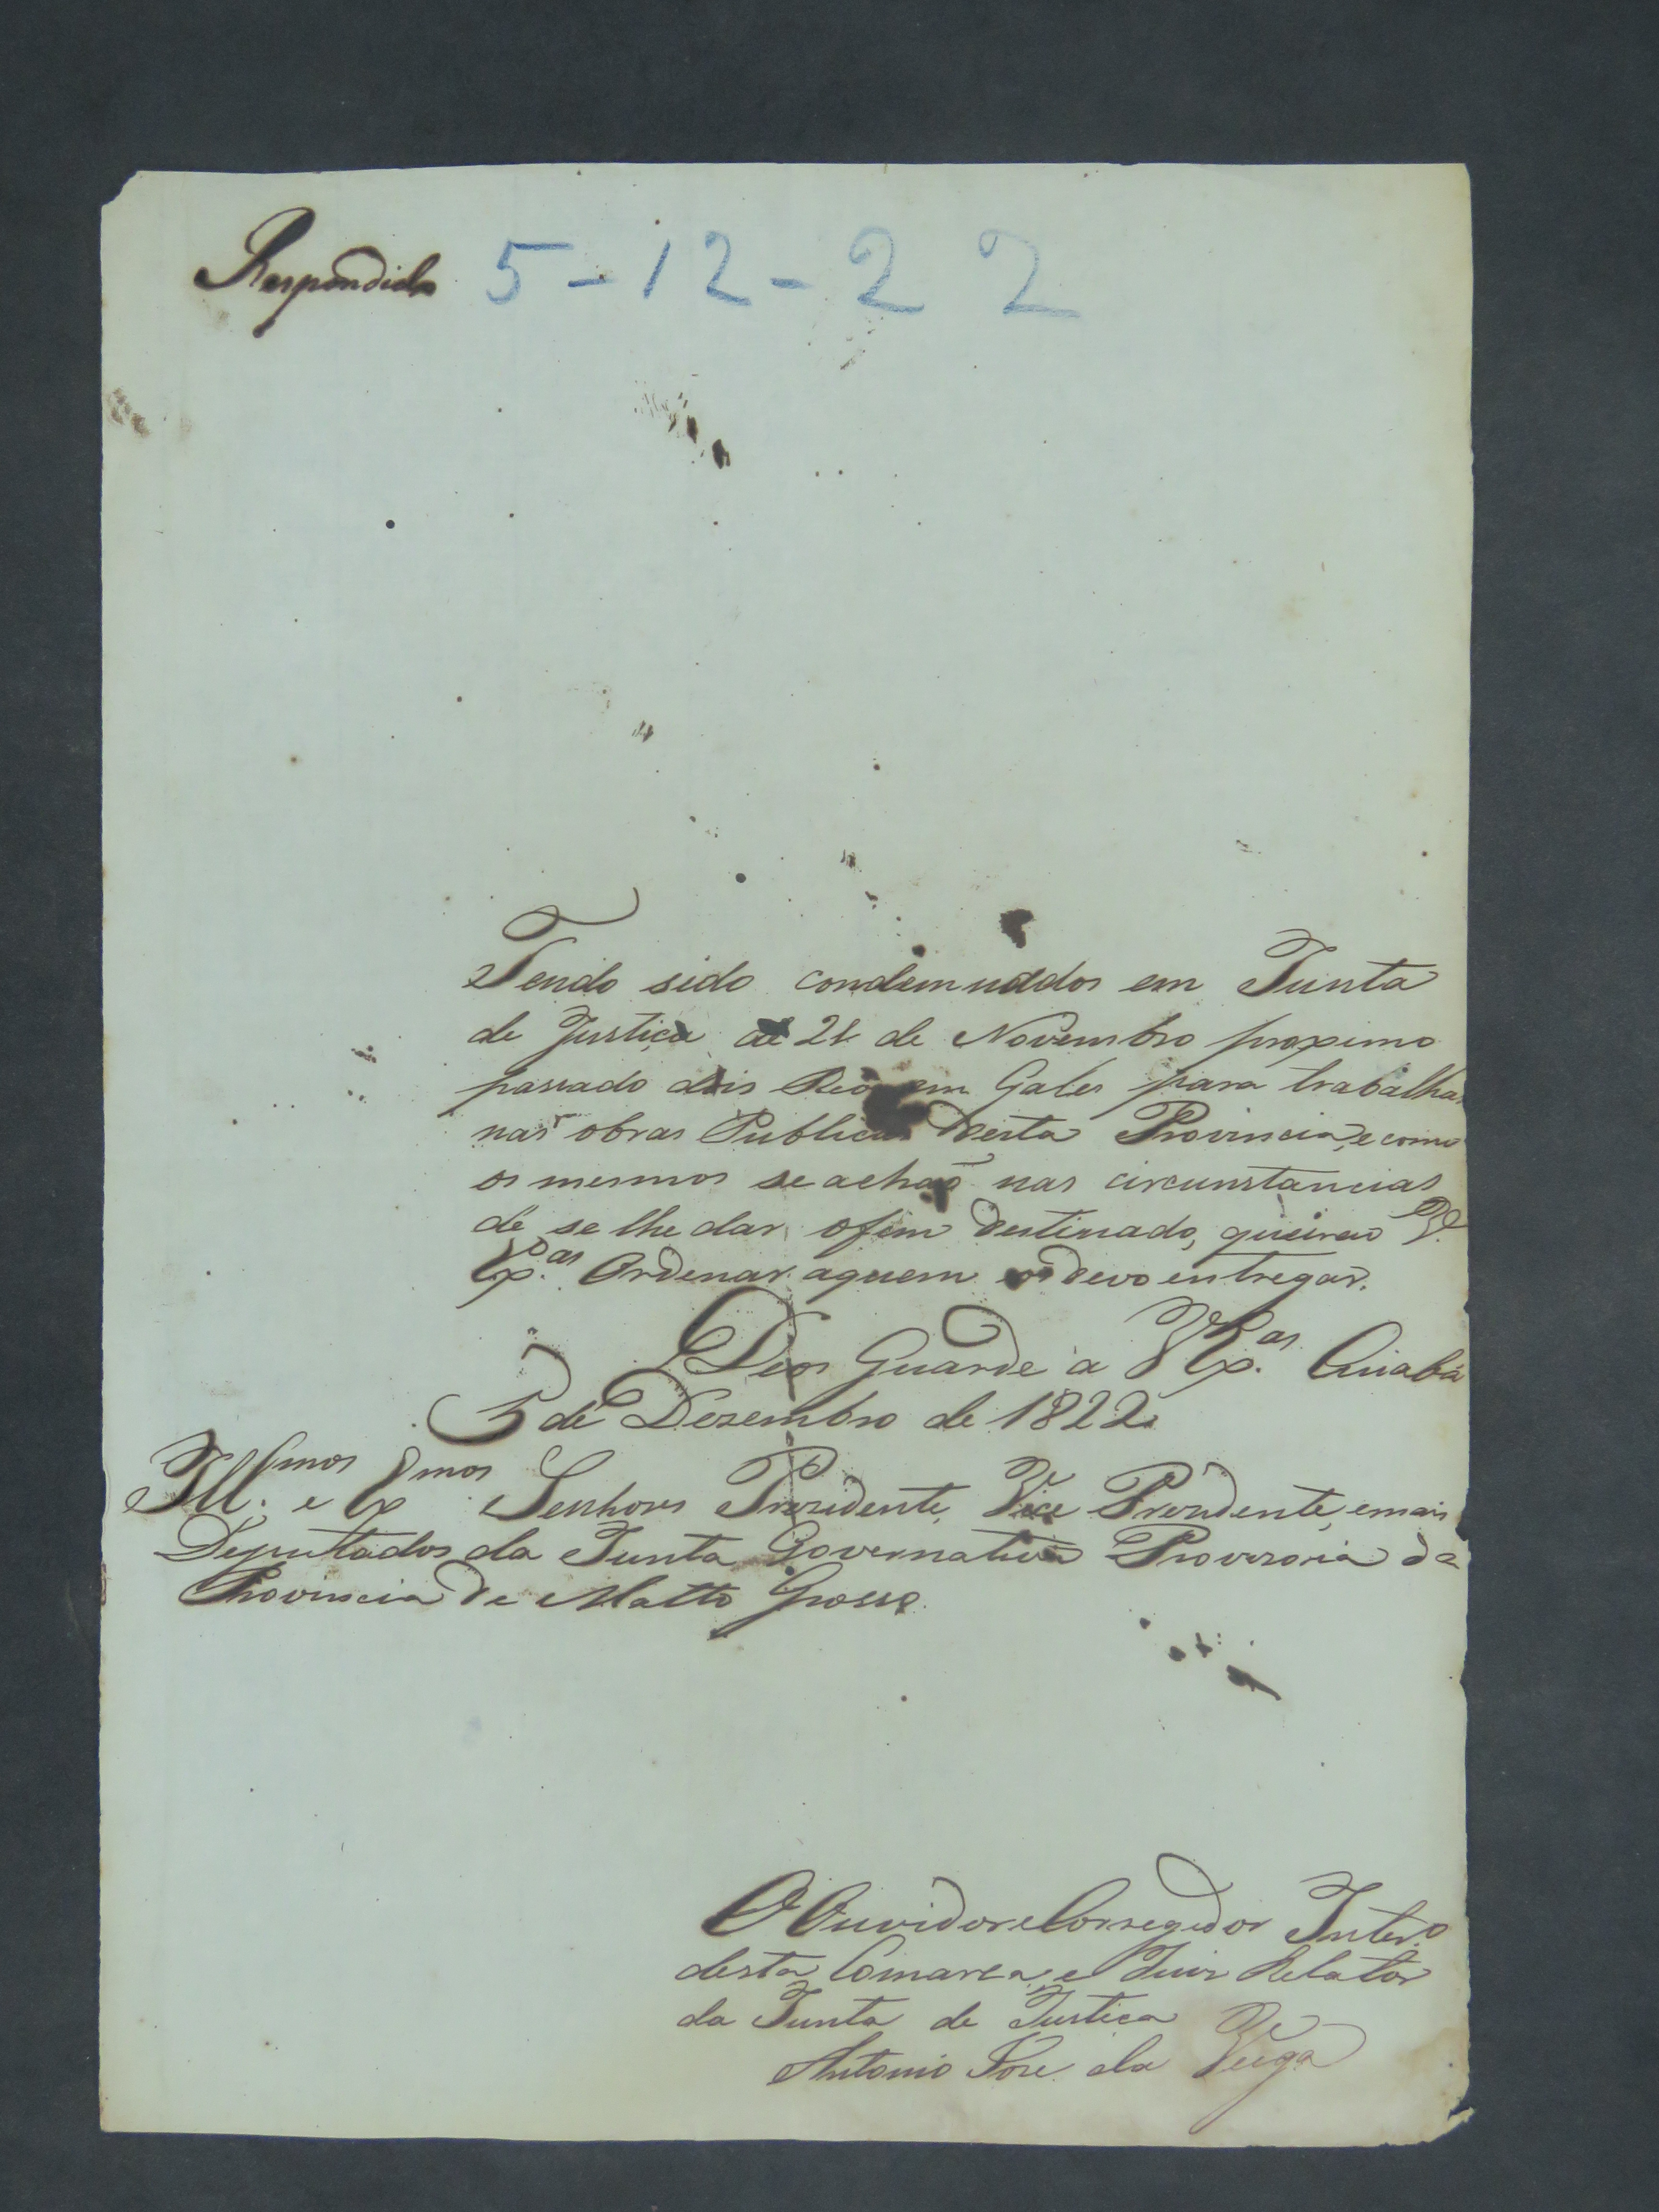 Respondido 5-12-22
Tendo sido condemnados em Junta
de Justiça de 21 de Novembro proximo
passado dois Reos em Gales para trabalhar
nas obras Publicas desta Provincia, e como
os mesmos se achaõ nas circunstancias
de se lhe dar o fim destinado, queiraõ V.
Ex.as Ordenar aquem os devo entregar.
Deos Guarde a V Ex.as Cuiabá
5 de Dezembro de 1822
Ill.mos e Ex.mos Senhores Prezidente, Vice Prezidente, emais
Deputados da Junta Governativa Provizoria da
Provincia de Matto Grosso
O Ouvidor e Corregedor Inter.o
desta Comarca, e Juiz Relator
da Junta de Justiça
Antonio Jose da Veiga